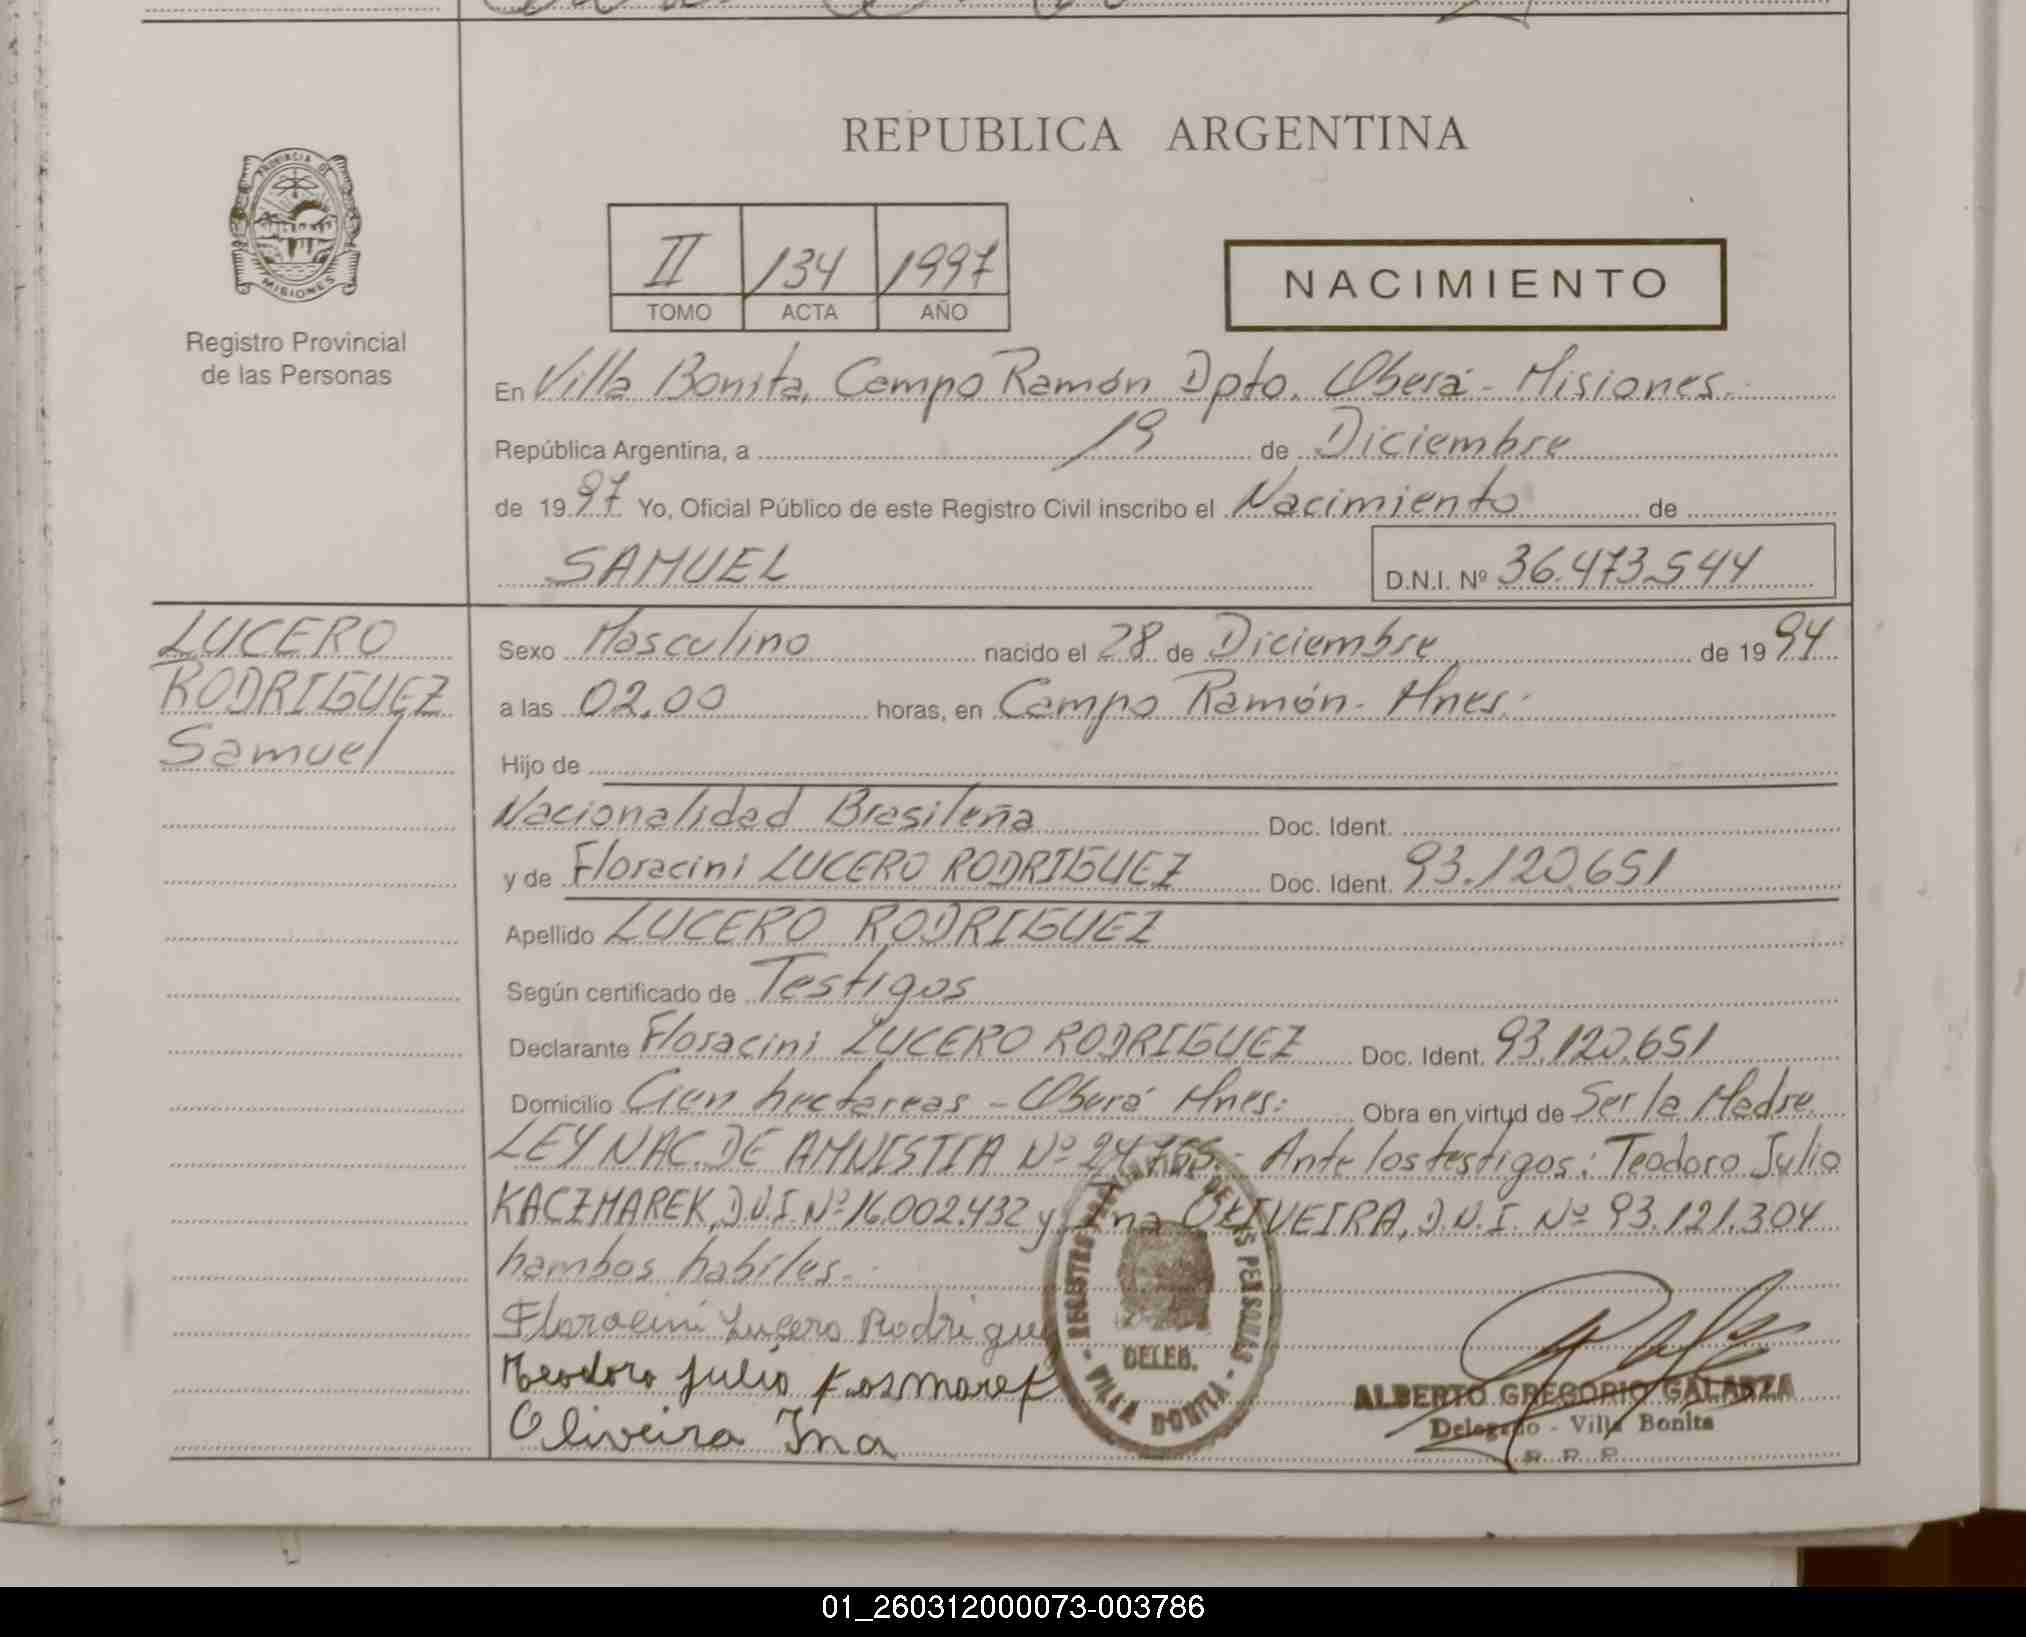 REPUBLICA ARGENTINA
PROVINCIA DE
MISIONES
Registro Provincial
de las Personas
II 134 1997
TOMO ACTA AÑO
NACIMIENTO
En Villa Bonita, Campo Ramón Dpto. Oberá - Misiones.
República Argentina, a 19 de Diciembre
de 1997 Yo, Oficial Público de este Registro Civil inscribo el Nacimiento de
SAMUEL D.N.I. Nº 36.473.544
LUCERO
RODRIGUEZ
Samuel
Sexo Masculino nacido el 28 de Diciembre de 1994
a las 02,00 horas, en Campo Ramón - Mnes.
Hijo de
Nacionalidad Brasileña Doc. Ident.
y de Floracini LUCERO RODRIGUEZ Doc. Ident. 93.120.651
Apellido LUCERO RODRIGUEZ
Según certificado de Testigos
Declarante Floracini LUCERO RODRIGUEZ Doc. Ident. 93.120.651
Domicilio Cien hectareas - Oberá Mnes: Obra en virtud de Ser la Madre
LEY NAC. DE AMNISTIA Nº 24.755.- Ante los testigos: Teodoro Julio
KACZMAREK, D.N.I. Nº 16.002.432 y Ina OLIVEIRA, D.N.I. Nº 93.121.304
hambos habiles.
Floracini Lucero Rodriguez
Teodoro Julio
Oliveira Ina
REGISTRO DE LAS PERSONAS
DELEG.
- VILLA BONITA -
ALBERTO GREGORIO GALARZA
Delegado - Villa Bonita
R. P. P.
01_260312000073-003786